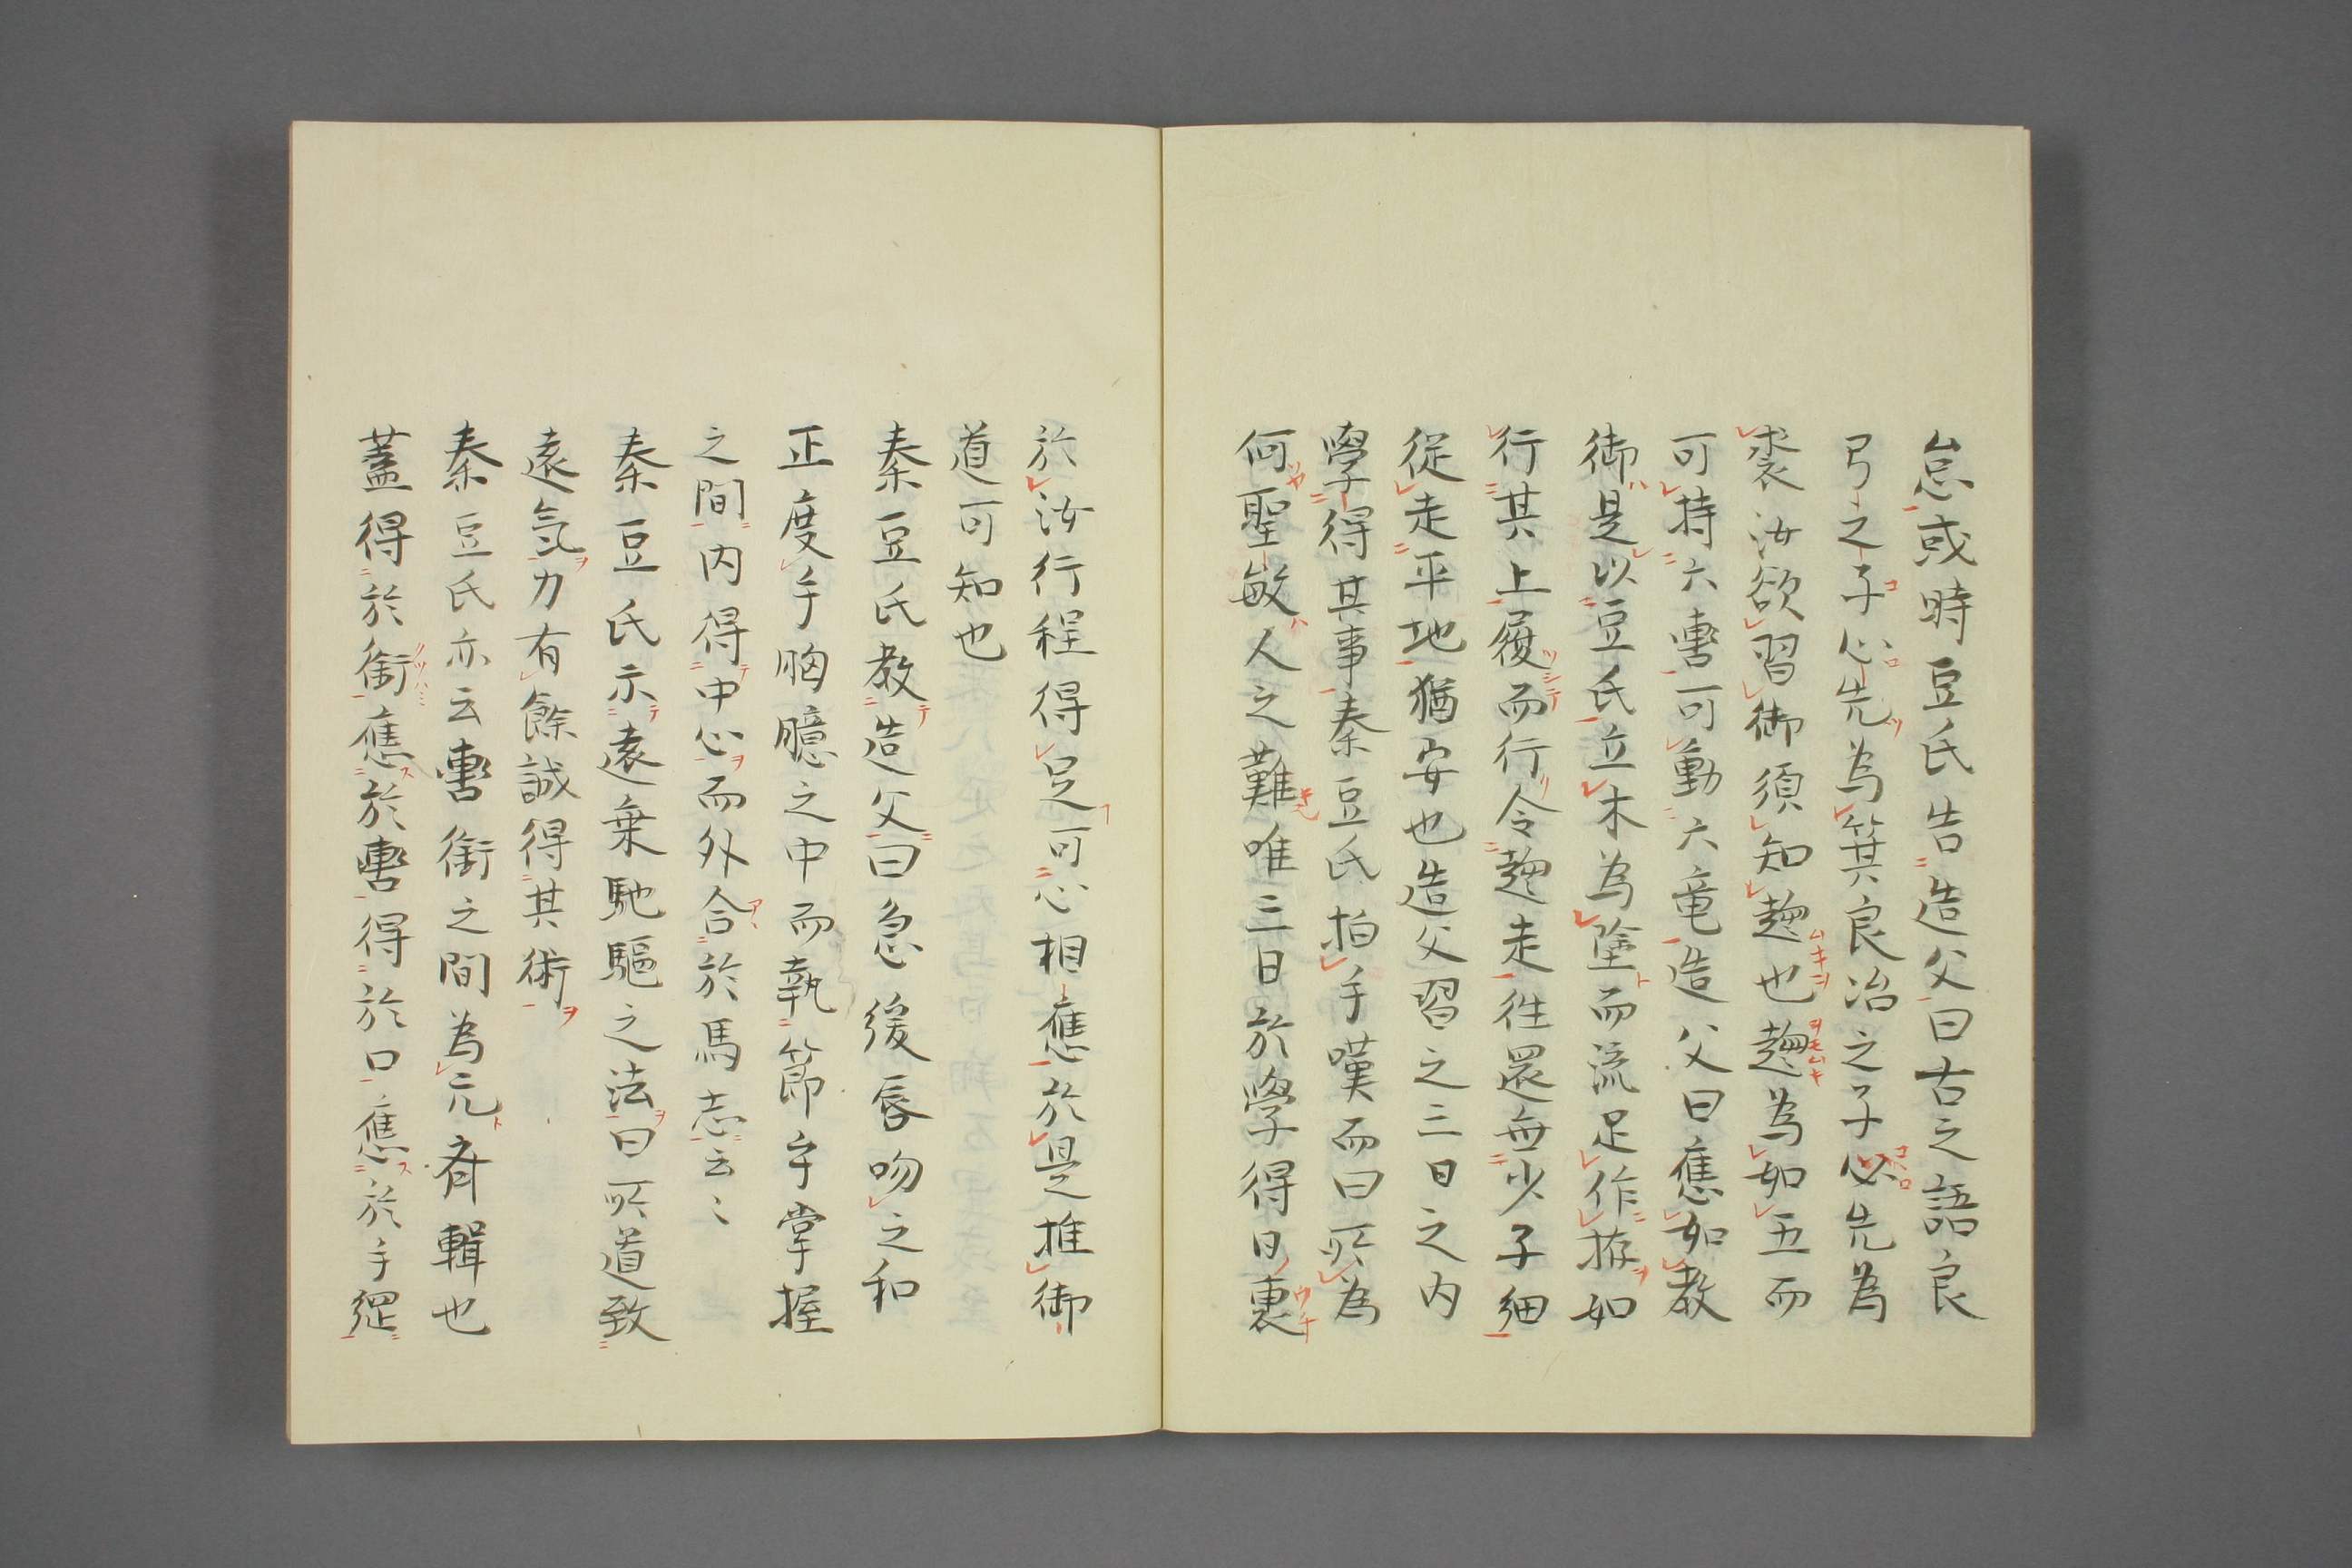 怠或時豆氏告造父曰古之語良
弓之子心先為箕良冶之子必先為
裘汝欲習御須知趣也趣為如五而
可持六轡可動六竜造父曰應如教
御是以豆氏立木為塗而流足作拵如
行其上履而行令趣走往還無少子細
従走平地猶安也造父習之三日之内
學得其事秦豆氏拍手嘆而曰所為
何聖敏人之難唯三日於學得日裏
於汝行程得足可心相應於是推御
道可知也
秦豆氏教造父曰急緩唇吻之和
正度手胸臆之中而執節乎掌握
之間内得中心而外合於馬志云〻
秦豆氏示遠乗馳驅之法曰所道致
遠氣力有餘誠得其術
秦豆氏亦云轡銜之間為元斉輯也
蓋得於銜應於轡得於口應於手縕